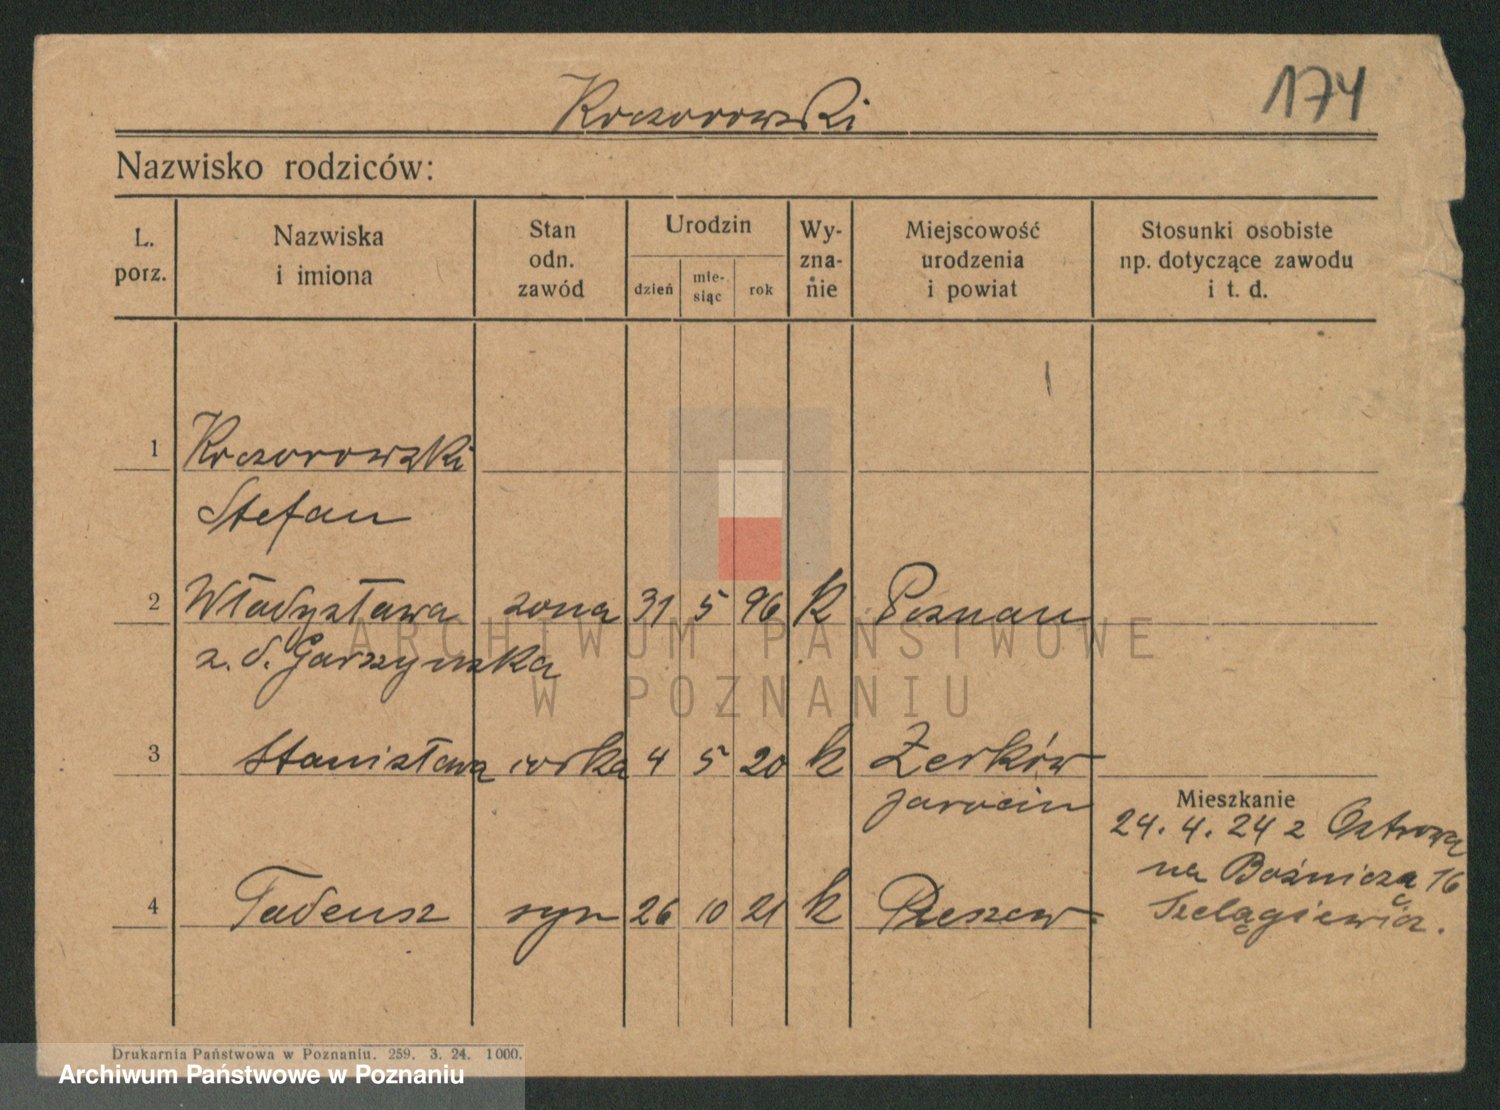 Koczorowski
174
Nazwisko rodziców:
L. porz.
Nazwiska i imiona
Stan odn. zawód
Urodzin
dzień
mie- siąc
rok
Wy- zna- nie
Miejscowość urodzenia i powiat
Stosunki osobiste np. dotyczące zawodu i t. d.
1 Koczorowski
Stefan
2 Władysława zona 31 5 96 k Poznan
z. d. Garszynska
3 Stanisława corka 4 5 20 k Żerków
Jarocin
Mieszkanie
24. 4. 24 z Ostrowa
na Bożnicza 16
4 Tadeusz syn 26 10 21 k Pleszew
Szelągiewicz.
ARCHIWUM PAŃSTWOWE
W POZNANIU
Drukarnia Państwowa w Poznaniu. 259. 3. 24. 1000.
Archiwum Państwowe w Poznaniu